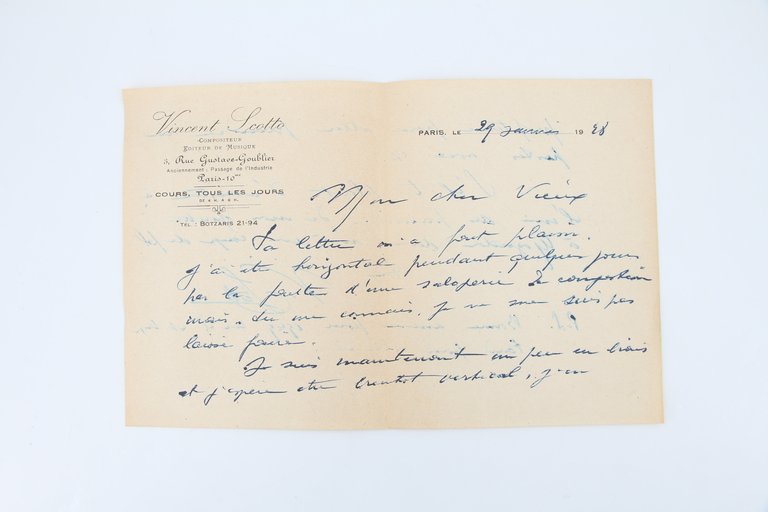 Vincent Scotto
Compositeur
Editeur de Musique
3, Rue Gustave-Goublier
Anciennement : Passage de l'Industrie
Paris-10me
COURS, TOUS LES JOURS
DE 4 H. A 6 H.
TÉL : BOTZARIS 21-94
PARIS, LE 29 Janvier 1928
Mon cher Vieux
Ta lettre m'a fait plaisir.
J'ai été horizontal pendant quelques jours
par la faute d'une saloperie de congestion
mais, tu me connais, je ne me suis pas
laissé faire.
Je suis maintenant un peu en biais
et j'espère être bientôt vertical, j'en